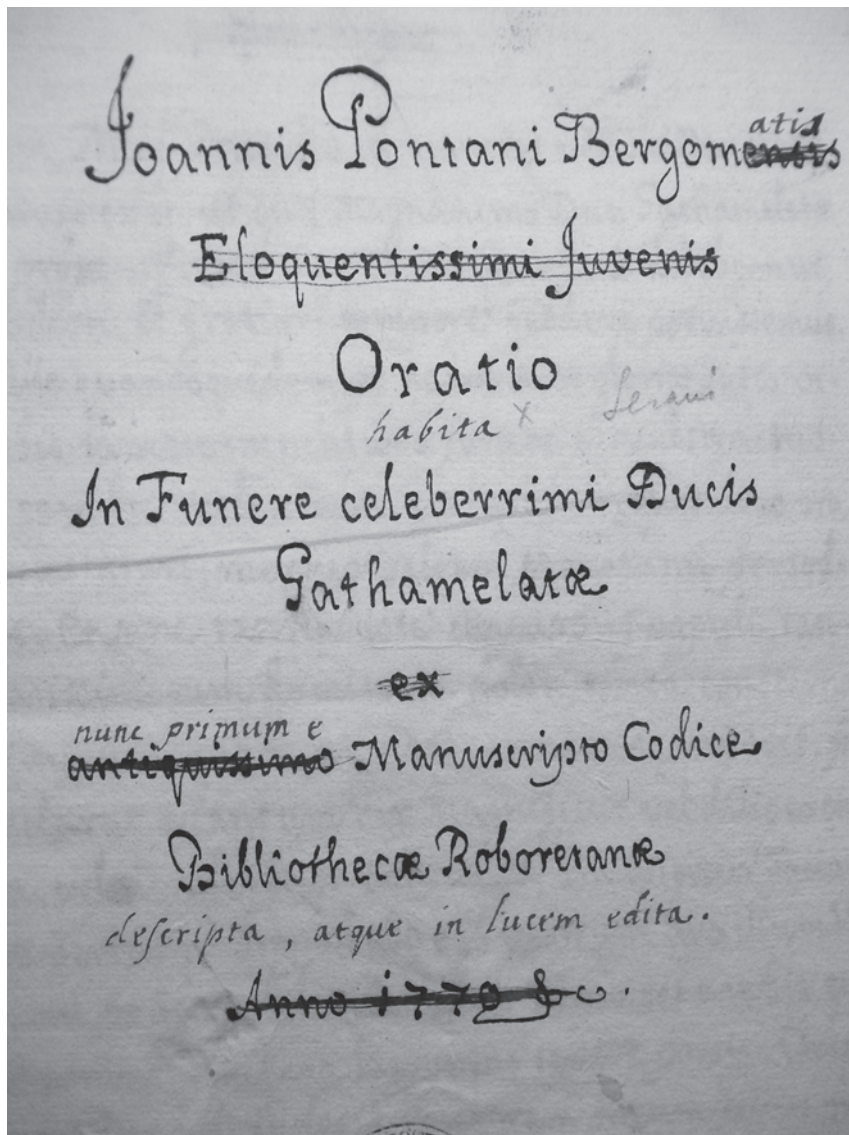 Joannis Pontani Bergomensis
atis
Eloquentissimi Juvenis
Oratio
habita x
In Funere celeberrimi Ducis
Gathamelatæ
ex
nunc primum e
antiquissimo Manuscripto Codice
Bibliothecæ Roboretanæ
descripta, atque in lucem edita.
Anno 1770 &c.